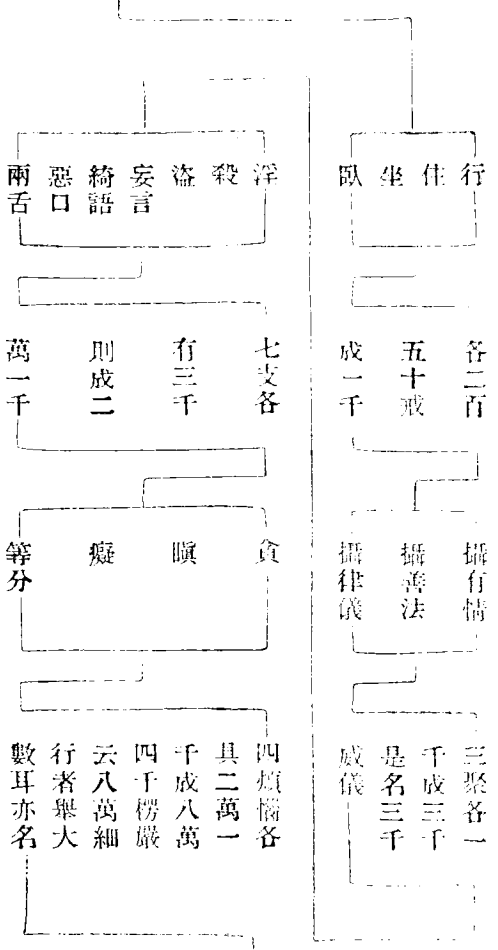 行
住
坐
臥
各二百
五十戒
成一千
攝有情
攝善法
攝律儀
三聚各一
千成三千
是名三千
威儀
淫
殺
盜
妄言
綺語
惡口
兩舌
七支各
有三千
則成二
萬一千
貪
瞋
癡
等分
四煩惱各
具二萬一
千成八萬
四千楞嚴
云八萬細
行者舉大
數耳亦名